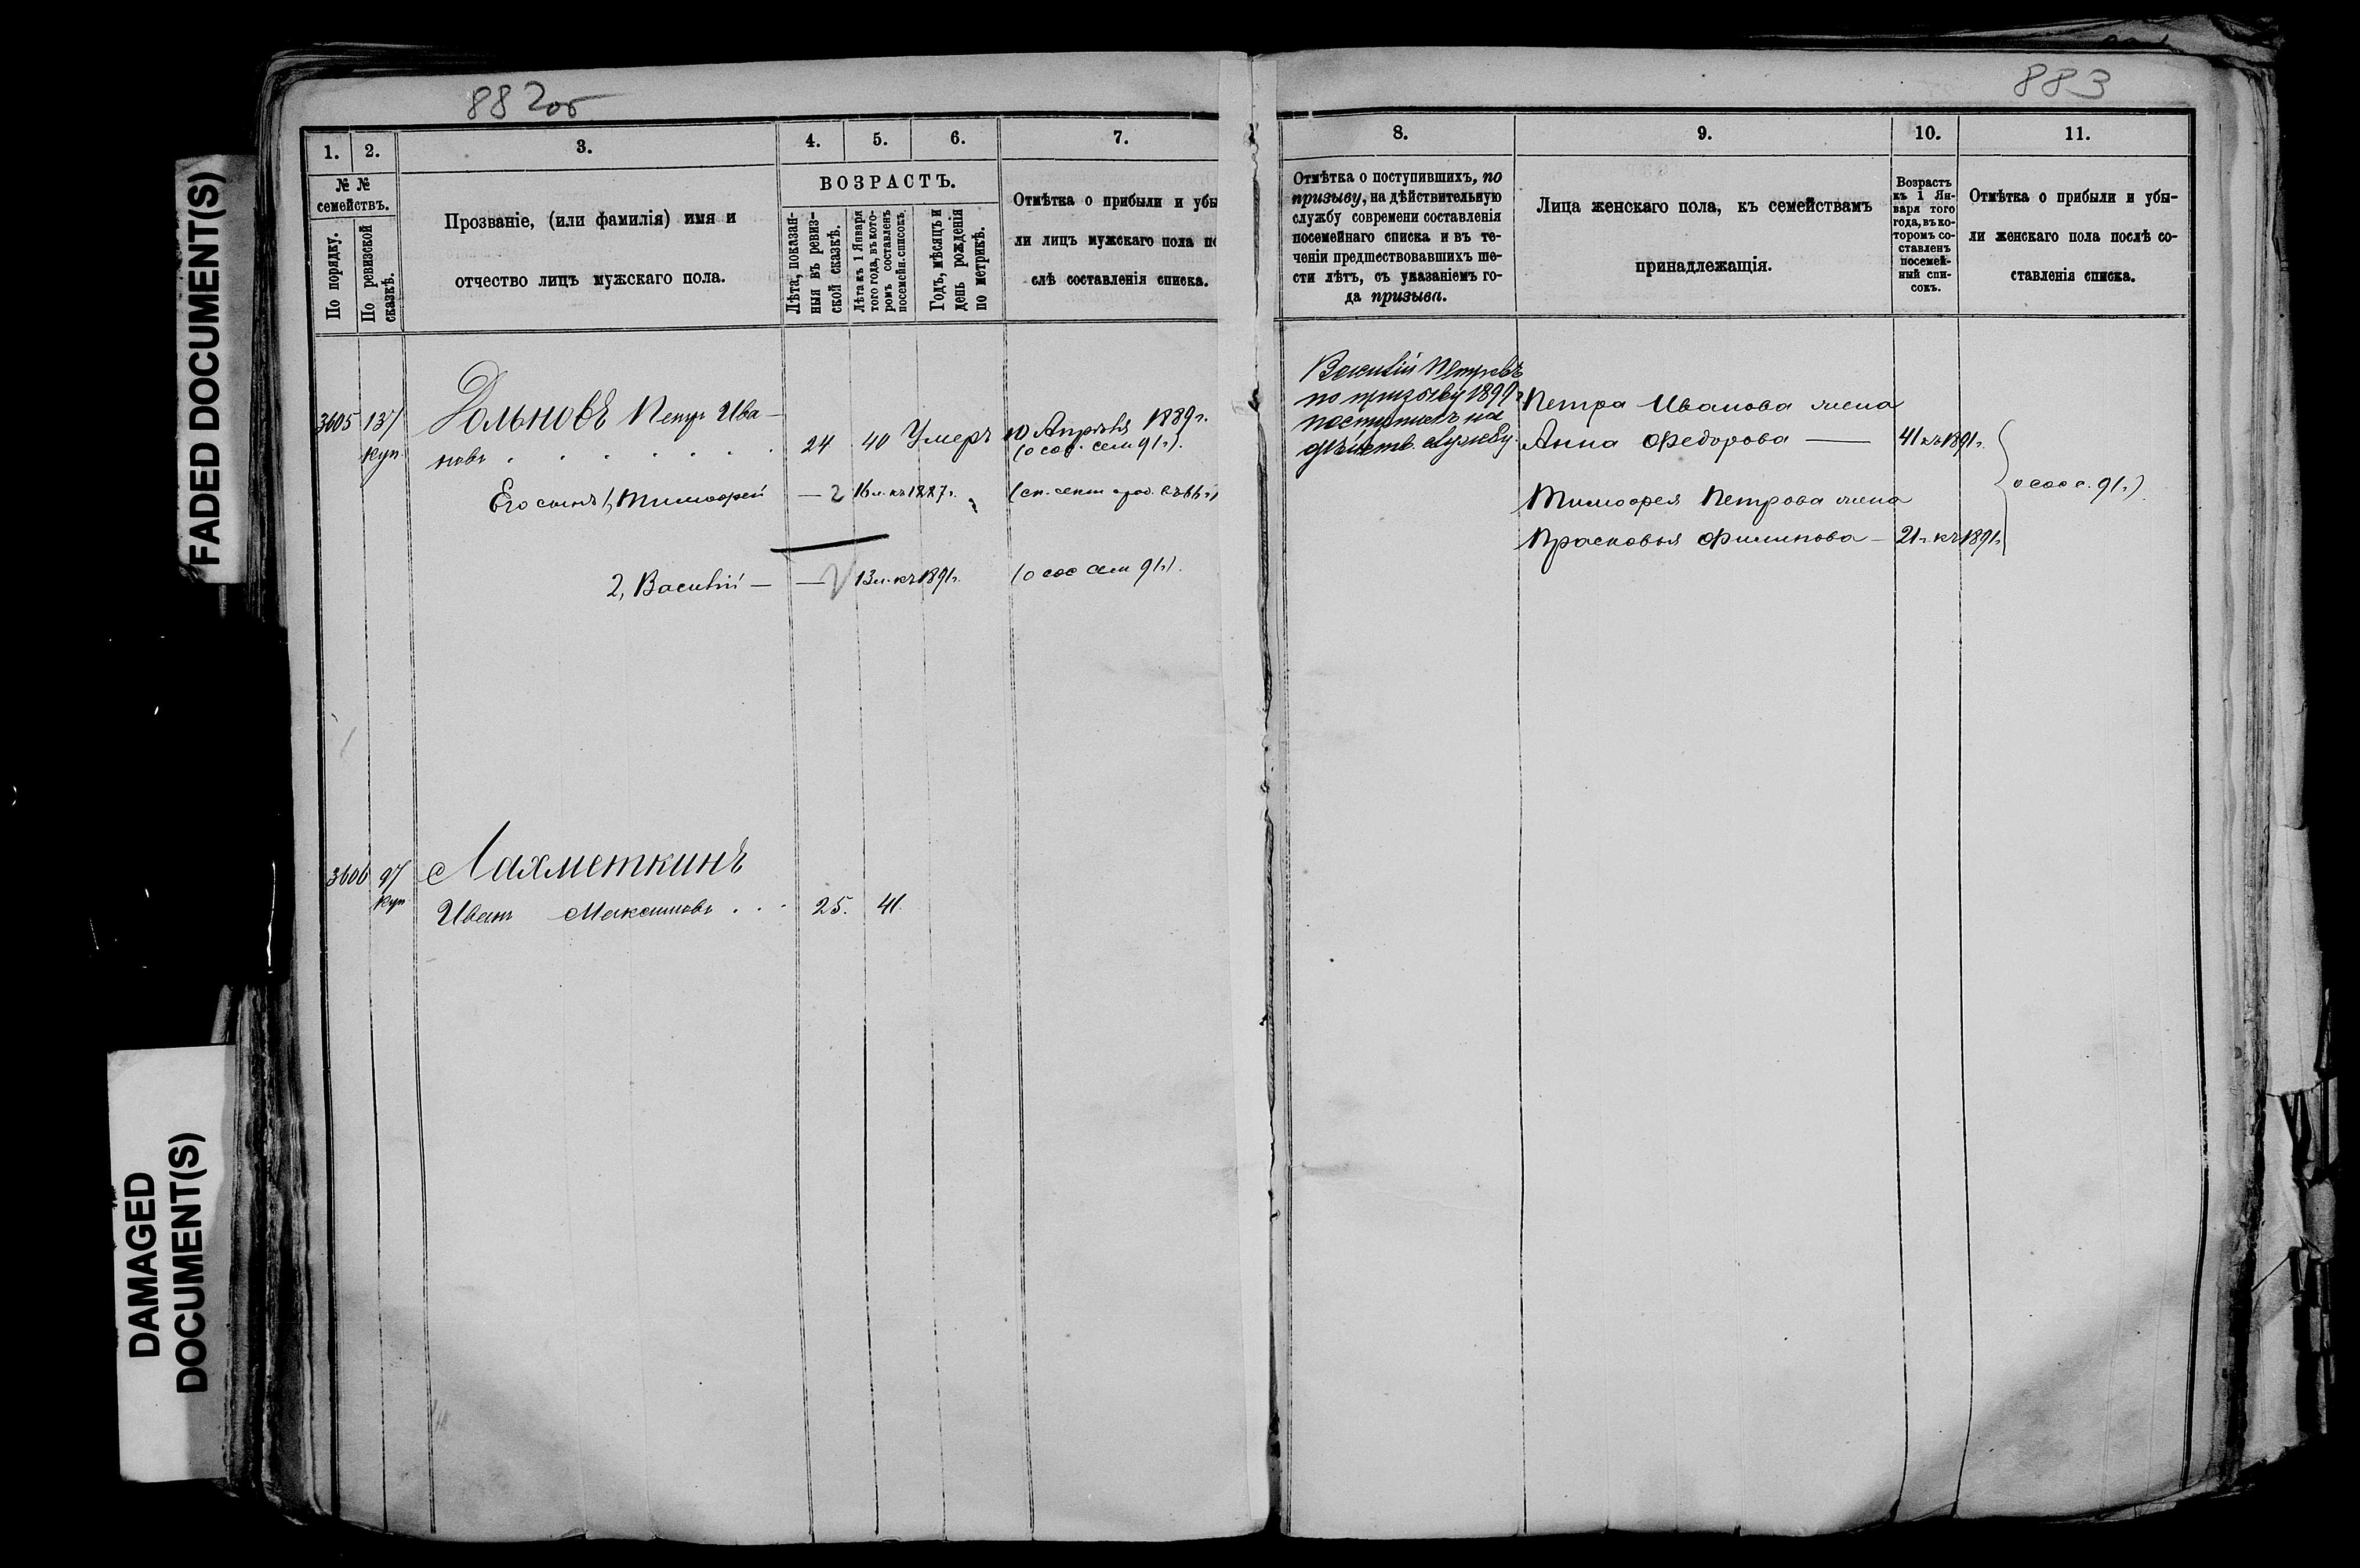 FADED DOCUMENT(S)
DAMAGED
DOCUMENT(S)
882об
1. 2. 3. 4. 5. 6. 7.
№ №
семействъ.
По порядку.
По ревизской
сказкѣ.
Прозваніе, (или фамилія) имя и
отчество лицъ мужскаго пола.
ВОЗРАСТЪ.
Лѣта, показан-
ныя въ ревиз-
ской сказкѣ.
Лѣта къ 1 Января
того года, въ кото-
ромъ составленъ
посемейн. списокъ.
Годъ, мѣсяцъ и
день рожденія
по метрикѣ.
Отмѣтка о прибыли и убы
ли лицъ мужскаго пола по
слѣ составленія списка.
3605 137 Дольновъ Петръ Ива-
куп. новъ 24 40 Умеръ 10 Апрѣля 1889 г.
(о сос. сем 91 г.).
Его сынъ 1, Тимофей — 2 16 л. къ 1887 г.
2, Василій — — 13 л. къ 1891 г. (о сос сем 91 г.).
3606 97 Лахметкинъ
куп Иванъ Максимовъ . . 25. 41.
883
8. 9. 10. 11.
Отмѣтка о поступившихъ, по
призыву, на дѣйствительную
службу современи составленія
посемейнаго списка и въ те-
ченіи предшествовавшихъ ше-
сти лѣтъ, съ указаніемъ го-
да призыва.
Лица женскаго пола, къ семействамъ
принадлежащія.
Возрастъ
къ 1 Ян-
варя того
года, въ ко-
торомъ со-
ставленъ
посемей-
ный спи-
сокъ.
Отмѣтка о прибыли и убы-
ли женскаго пола послѣ со-
ставленія списка.
Василій Петровъ
по призыву 1899 г.
поступилъ на
дѣйств. службу.
Петра Иванова жена
Анна Федорова — 41 къ 1891 г.
Тимофея Петрова жена
Прасковья Филипова — 21 г. къ 1891 г.
о сос с. 91 г.)